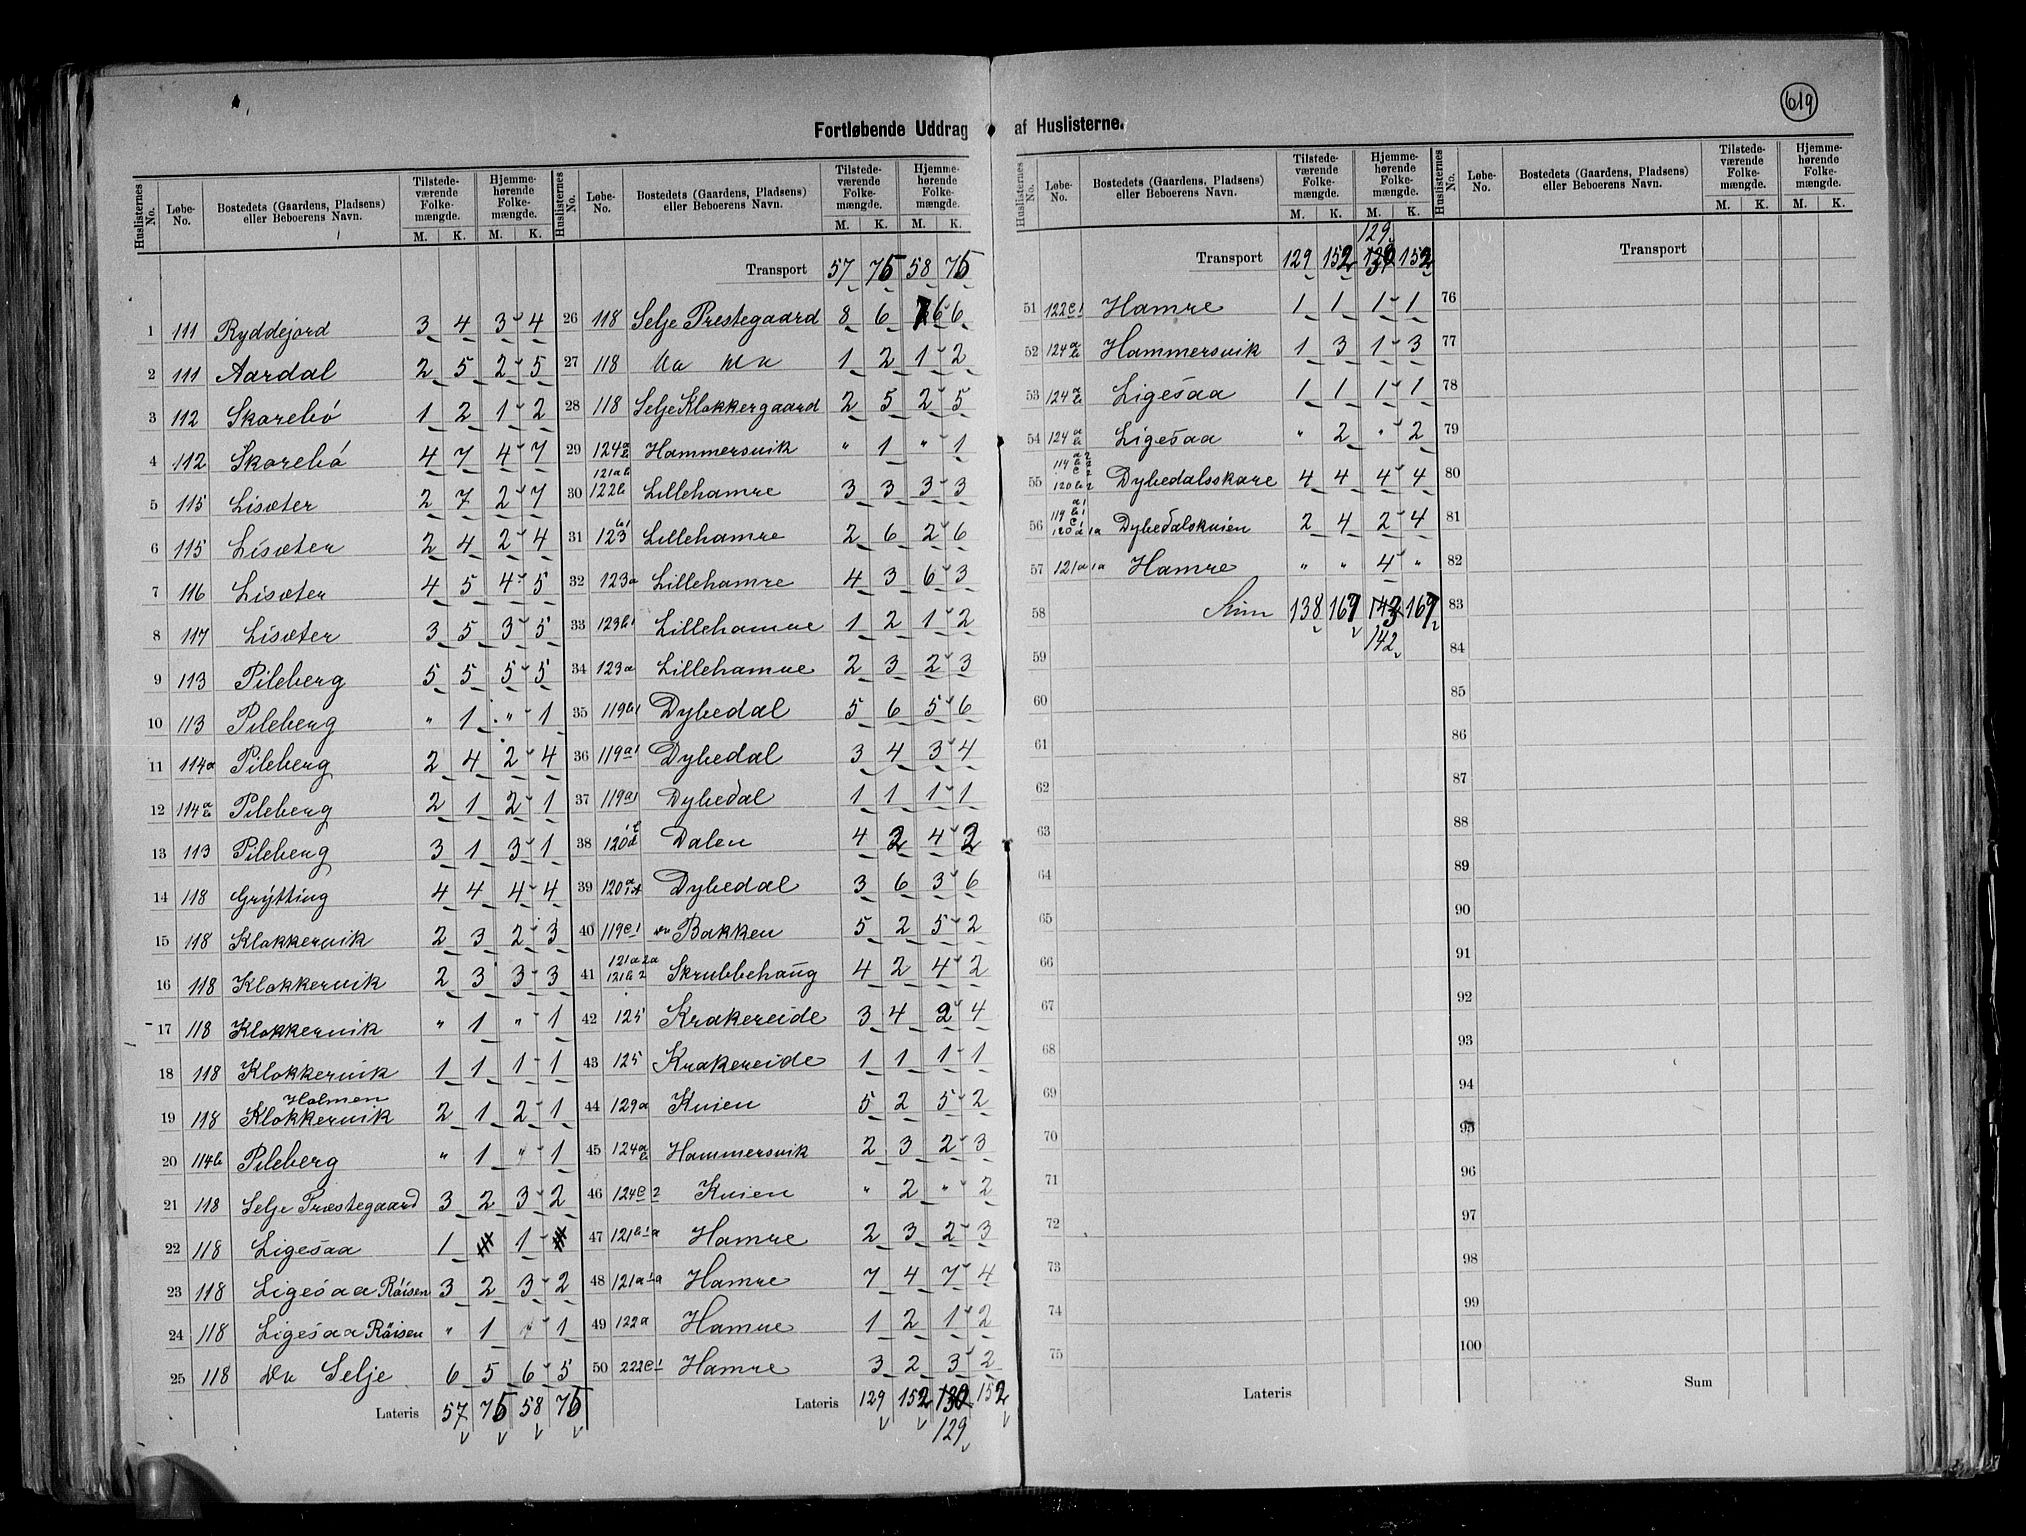 619
Fortløbende Uddrag af Huslisterne.
Huslisternes No. | Løbe-No. | Bostedets (Gaardens, Pladsens) eller Beboerens Navn. | Tilstedeværende Folkemængde. M. K. | Hjemmehørende Folkemængde. M. K.
1 111 Ryddejord 3 4 3 4
2 111 Aardal 2 5 2 5
3 112 Skorebø 1 2 1 2
4 112 Skorebø 4 7 4 7
5 115 Lisæter 2 7 2 7
6 115 Lisæter 2 4 2 4
7 116 Lisæter 4 5 4 5
8 117 Lisæter 3 5 3 5
9 113 Pileberg 5 5 5 5
10 113 Pileberg " 1 " 1
11 114a Pileberg 2 4 2 4
12 114 a b Pileberg 2 1 2 1
13 113 Pileberg 3 1 3 1
14 118 Grýtting 4 4 4 4
15 118 Klokkervik 2 3 2 3
16 118 Klokkervik 2 3 3 3
17 118 Klokkervik " 1 " 1
18 118 Klokkervik 1 1 1 1
Holmen
19 118 Klokkervik 2 1 2 1
20 114b Pileberg " 1 " 1
21 118 Selje Præstegaard 3 2 3 2
22 118 Ligesaa 1 1
23 118 Ligesaa Röisen 3 2 3 2
24 118 Ligesaa Röisen " 1 " 1
25 118 Do Selje 6 5 6 5
Lateris 57 75 58 75
Huslisternes No. | Løbe-No. | Bostedets (Gaardens, Pladsens) eller Beboerens Navn. | Tilstedeværende Folkemængde. M. K. | Hjemmehørende Folkemængde. M. K.
Transport 57 75 58 75
26 118 Selje Prestegaard 8 6 6 6
27 118 Do Do 1 2 1 2
28 118 Selje Klokkergaard 2 5 2 5
29 124 a b Hammersvik " 1 " 1
30 121ab 122b Lillehamre 3 3 3 3
31 123 b1 Lillehamre 2 6 2 6
32 123a Lillehamre 4 3 6 3
33 123b1 Lillehamre 1 2 1 2
34 123a Lillehamre 2 3 2 3
35 119b1 Dybedal 5 6 5 6
36 119a1 Dybedal 3 4 3 4
37 119a1 Dybedal 1 1 1 1
38 120 Dalen 4 2 4 2
39 120 Dybedal 3 6 3 6
40 119c1 Bakken 5 2 5 2
41 121a2a 121b2 Skrubbehaug 4 2 4 2
42 125 Krakereide 3 4 2 4
43 125 Krakereide 1 1 1 1
44 129a Kvien 5 2 5 2
45 124 a b Hammersvik 2 3 2 3
46 124c2 Kvien " 2 " 2
47 121b1a Hamre 2 3 2 3
48 121a1a Hamre 7 4 7 4
49 122a Hamre 1 2 1 2
50 222c1 Hamre 3 2 3 2
Lateris 129 152 130 152
129
Huslisternes No. | Løbe-No. | Bostedets (Gaardens, Pladsens) eller Beboerens Navn. | Tilstedeværende Folkemængde. M. K. | Hjemmehørende Folkemængde. M. K.
129
Transport 129 152 130 152
51 122c1 Hamre 1 1 1 1
52 124 a b Hammersvik 1 3 1 3
53 124 a b Ligesaa 1 1 1 1
54 124 a b Ligesaa " 2 " 2
55 114 a2 b2 c2 120b2 Dybedalsskare 4 4 4 4
56 119 a1 b1 c1 120 a1a Dybedalskvien 2 4 2 4
57 121a1a Hamre " " 4 "
58 Sum 138 167 143 167
142
59
60
61
62
63
64
65
66
67
68
69
70
71
72
73
74
75
Lateris
Huslisternes No. | Løbe-No. | Bostedets (Gaardens, Pladsens) eller Beboerens Navn. | Tilstedeværende Folkemængde. M. K. | Hjemmehørende Folkemængde. M. K.
Transport
76
77
78
79
80
81
82
83
84
85
86
87
88
89
90
91
92
93
94
95
96
97
98
99
100
Sum